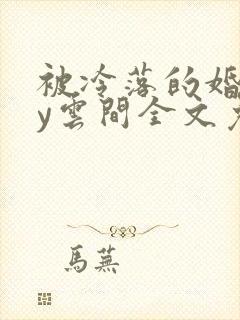 被冷落的婚
y雲間全文
馬蕪